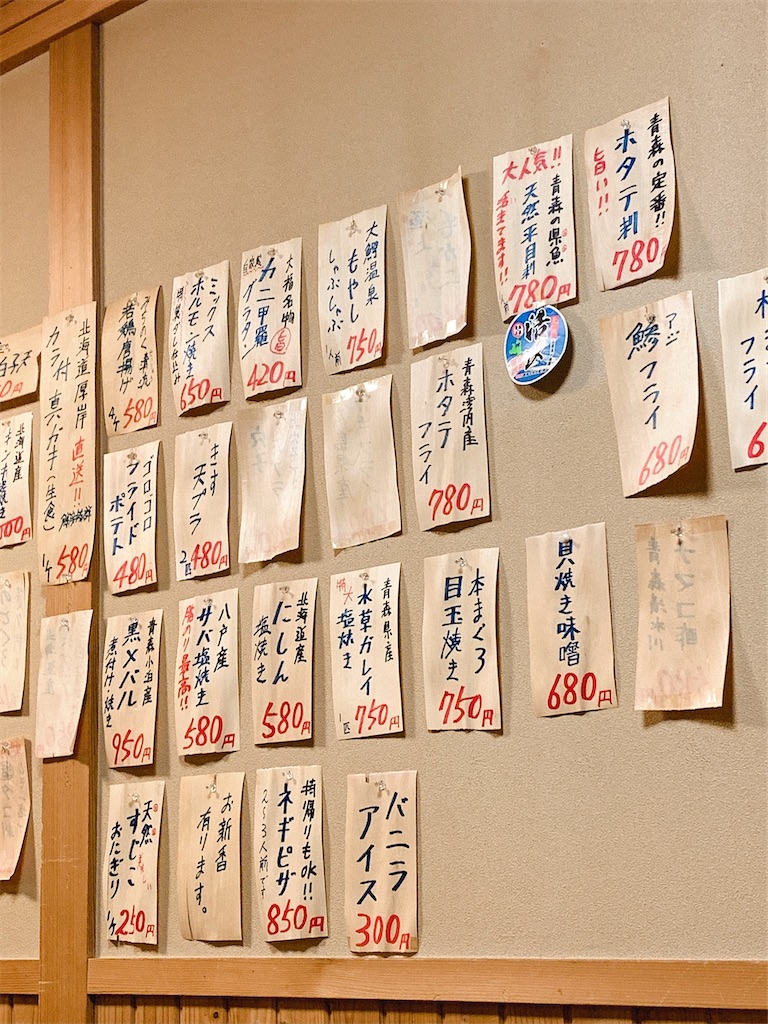 青森の定番!!
ホタテ刺
旨い!!
780円
大人気!!
青森の県魚
天然平目刺
活きてます!!
780円
大鰐温泉
もやし
しゃぶしゃぶ
1人前
750円
大指名物
カニ甲羅
グラタン
旨
420円
ミックス
ホルモン焼き
650円
若鶏唐揚げ
580円
北海道厚岸
直送!!
カラ付真ガキ(生食)
1ケ
580円
アジ
鯵フライ
680円
青森湾内産
ホタテ
フライ
780円
きす
天プラ
2匹
480円
ゴロゴロ
フライド
ポテト
480円
北海道産
貝焼き味噌
680円
本まぐろ
目玉焼き
750円
青森県産
水草ガレイ
特大
塩焼き
1匹
750円
北海道産
にしん
塩焼き
580円
八戸産
サバ塩焼き
脂のり最高!!
580円
青森小泊産
黒メバル
煮付け・焼き
950円
ナマコ酢
バニラ
アイス
300円
持帰りもOK!!
ネギピザ
2~3人前です
850円
お新香
有ります。
天然
すじこ
おにぎり
1ケ
250円